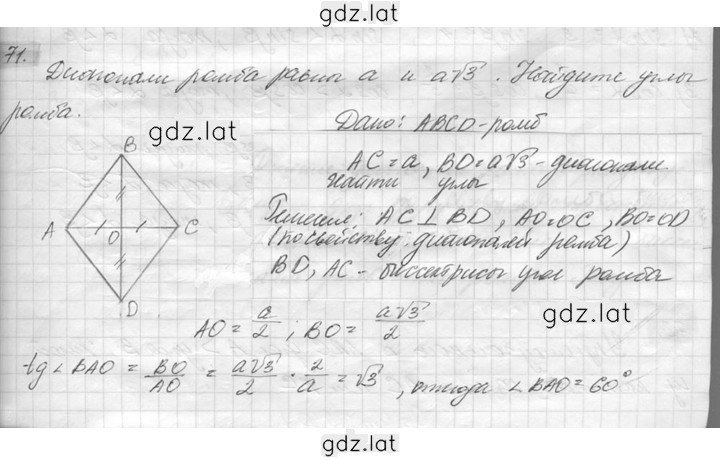 gdz.lat
71.
Диагонали ромба равны a и a√3. Найдите углы
ромба.
gdz.lat
Дано: ABCD-ромб
AC=a, BD=a√3-диагонали
Найти углы
B
A O C
D
Решение: AC⊥BD, AO=OC, BO=OD
(по свойству диагоналей ромба)
BD, AC - биссектрисы угл ромба
gdz.lat
AO = a/2 ; BO = a√3/2
tg∠BAO = BO/AO = a√3/2 · 2/a = √3, откуда ∠BAO=60°
gdz.lat